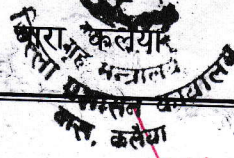 बारा कलैया
गृह मन्त्रालय
जिल्ला प्रशासन कार्यालय
बारा, कलैया